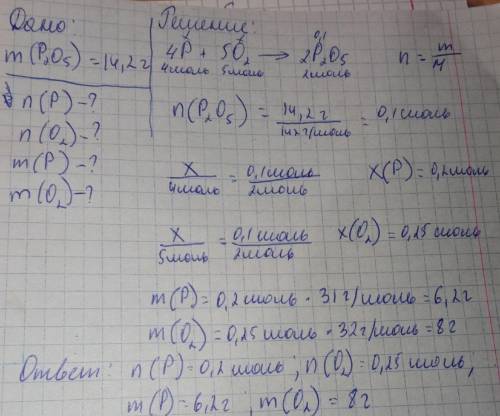 Дано:
m(P₂O₅) = 14,2 г
n(P) - ?
n(O₂) - ?
m(P) - ?
m(O₂) - ?
Решение:
0,1
4P + 5O₂ → 2P₂O₅ n = m/M
4моль 5моль 2моль
n(P₂O₅) = 14,2 г / 142 г/моль = 0,1 моль
x / 4 моль = 0,1 моль / 2 моль x(P) = 0,2 моль
x / 5 моль = 0,1 моль / 2 моль x(O₂) = 0,25 моль
m(P) = 0,2 моль · 31 г/моль = 6,2 г
m(O₂) = 0,25 моль · 32 г/моль = 8 г
Ответ: n(P) = 0,2 моль; n(O₂) = 0,25 моль,
m(P) = 6,2 г; m(O₂) = 8 г